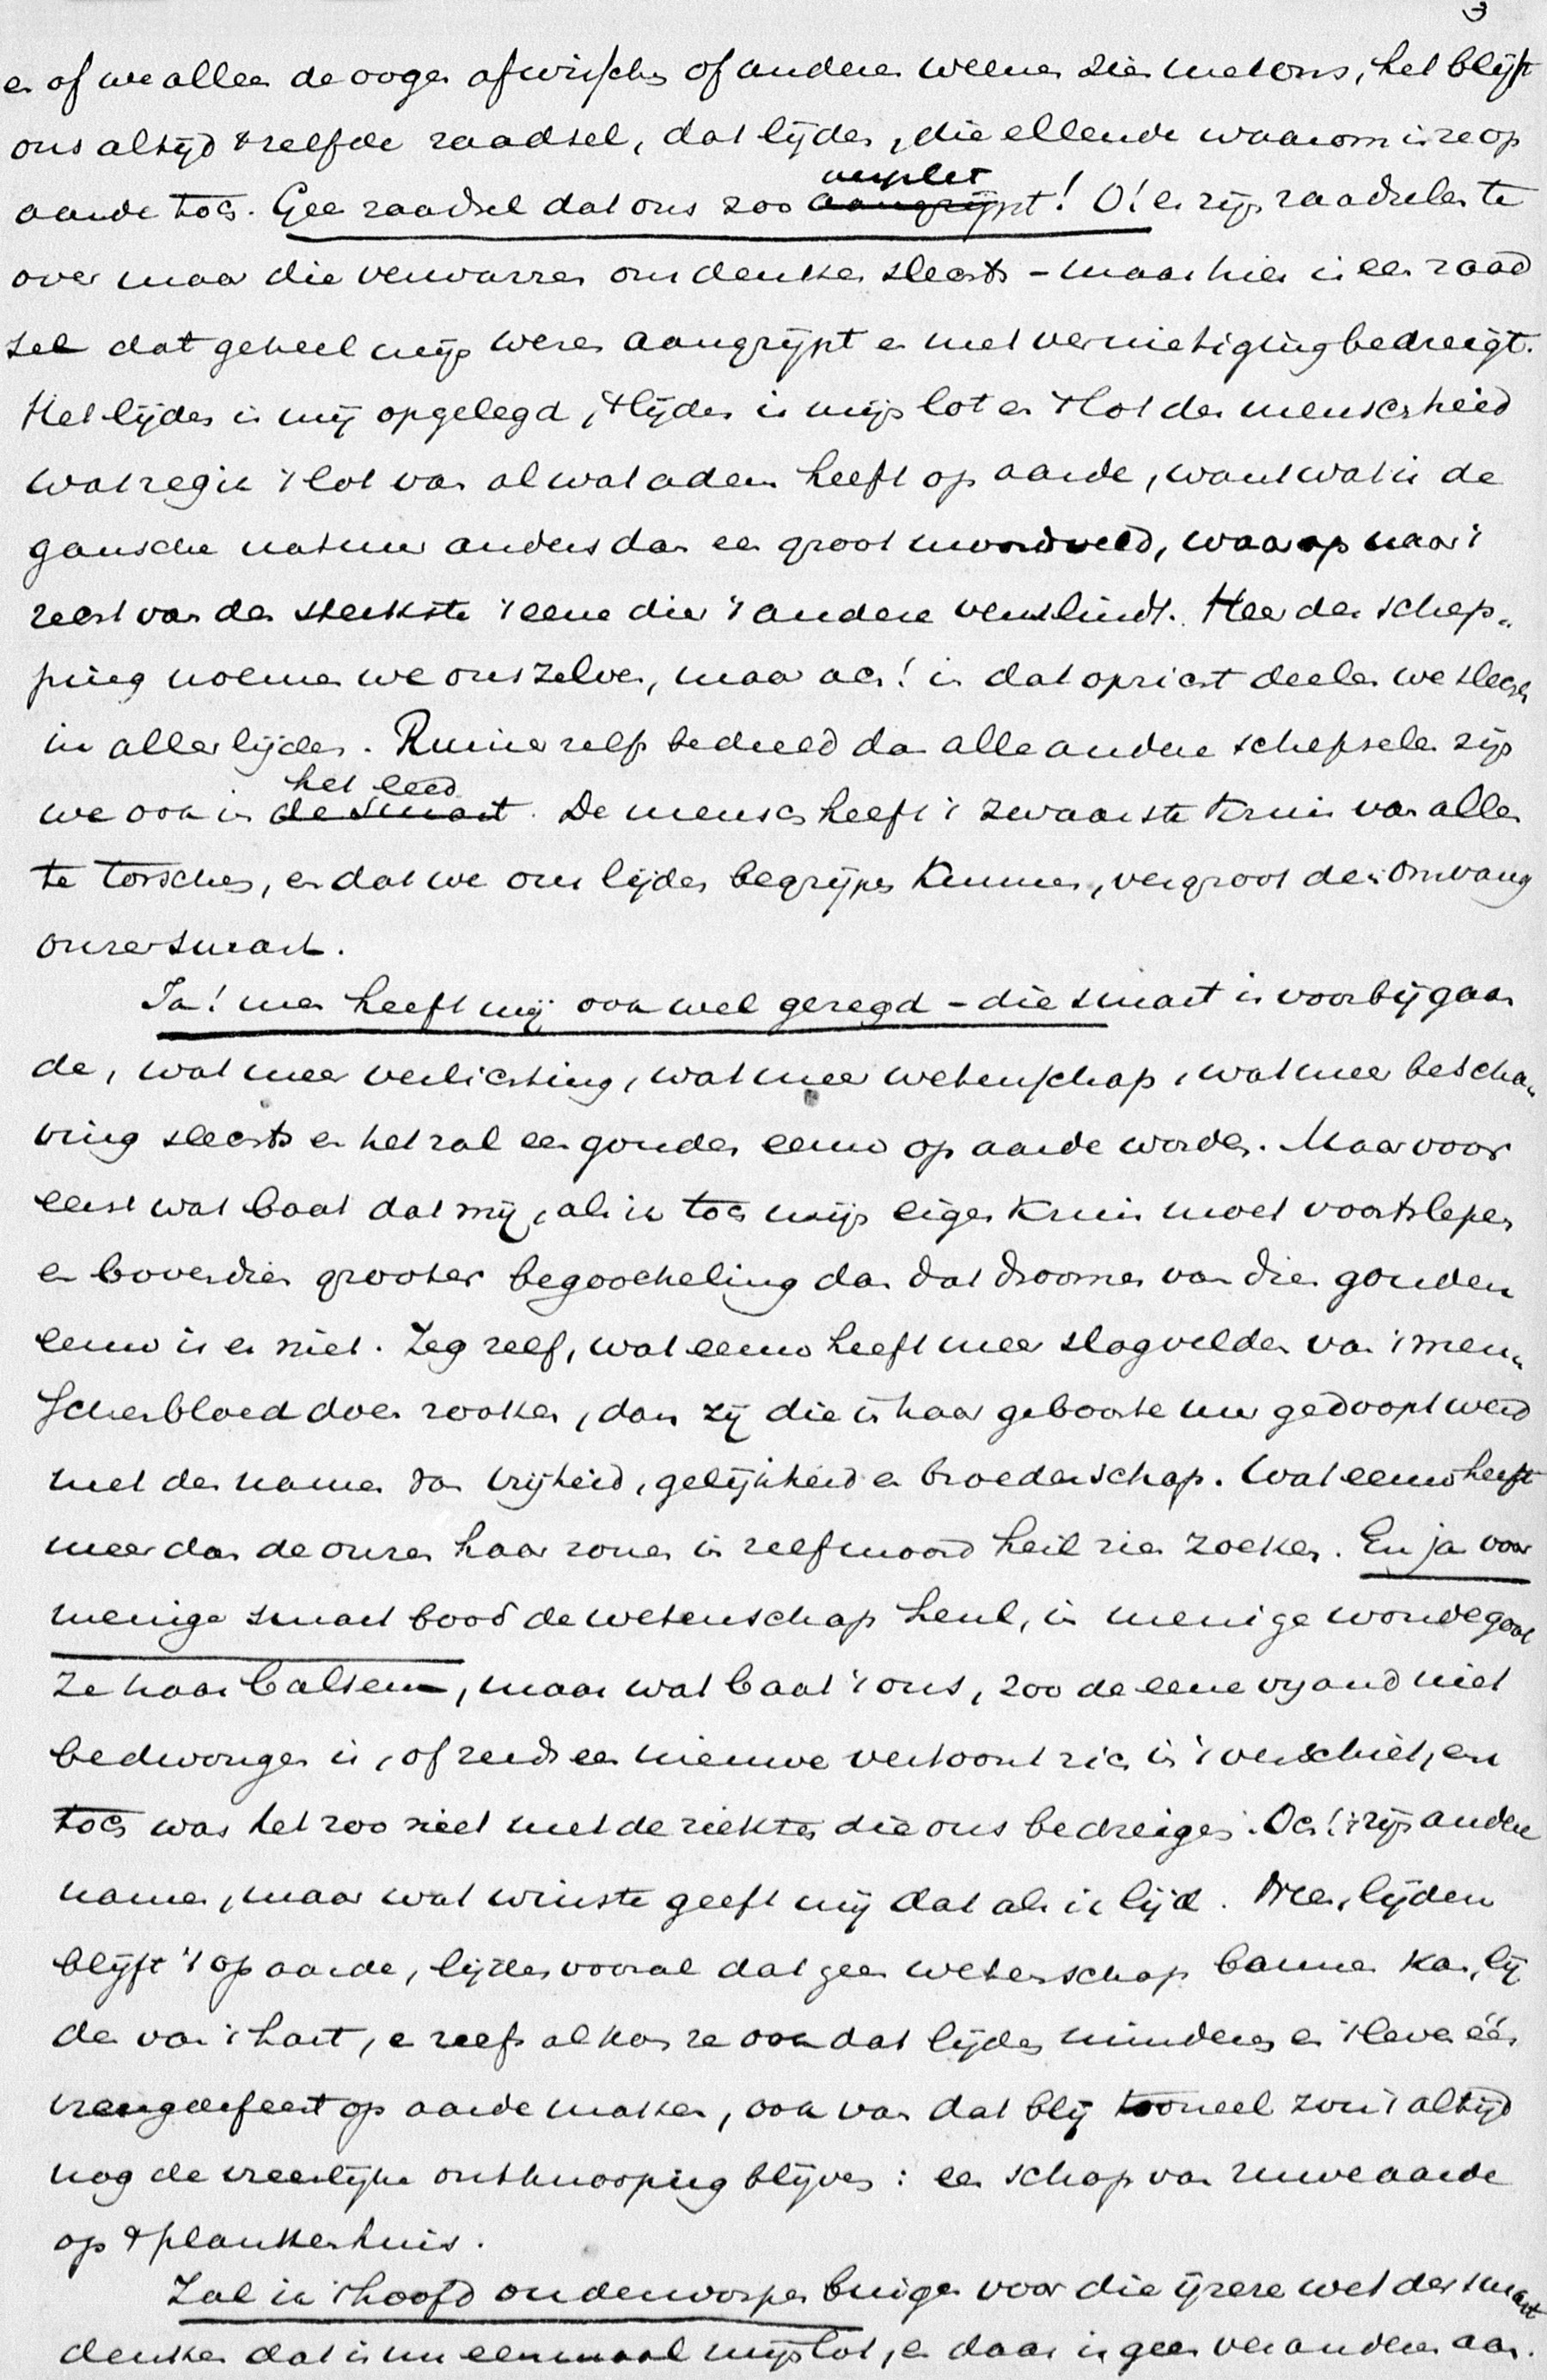 3
en of we alleen de oogen afwisschen of anderen weenen zien met ons, het blijft
ons altijd 't zelfde raadsel, dat lijden, die ellende waarom is ze op
aarde toch. Geen raadsel dat ons zoo aangrijpt! O! er zijn raadselen te
over maar die verwarren ons denken slechts – maar hier is een raad
sel dat geheel mijn wezen aangrijpt en met vernietiging bedreigt.
Het lijden is mij opgelegd, 't lijden is mijn lot en 't lot der menschheid
wat zeg ik 't lot van al wat adem heeft op aarde, want wat is de
gansche natuur anders dan een groot moordveld, waarop naar 't
recht van den sterkste 't eene dier 't andere verslindt. Heer der schep-
ping noemen we ons zelven, maar ach! in dat opzicht deelen we slechts
in aller lijden. Ruimer zelfs bedeeld dan alle andere schepselen zijn
we ook in de smart het leed. De mensch heeft 't zwaarste kruis van allen
te torschen, en dat we ons lijden begrijpen kunnen, vergroot den omvang
onzer smart.
Ja! men heeft mij ook wel gezegd – die smart is voorbijgaan
de, wat meer verlichting, wat meer wetenschap, wat meer bescha-
ving slechts en het zal een gouden eeuw op aarde worden. Maar voor
eerst wat baat dat mij, als ik toch mijn eigen kruis moet voortslepen
en bovendien grooter begoocheling dan dat droomen van dien gouden
eeuw is er niet. Zeg zelf, wat eeuw heeft meer slagvelden van 't men-
schenbloed doen rooken, dan zij die in haar geboorte uur gedoopt werd
met den namen van vrijheid, gelijkheid en broederschap. Wat eeuw heeft
meer dan de onzen haar zonen in zelfmoord heil zien zoeken. En ja voor
menige smart bood de wetenschap heul, in menige wonde goot
ze haar balsem, maar wat baat 't ons, zoo de eene vijand niet
bedwongen is, of reeds een nieuwe vertoont zich in 't verschiet, en
toch was het zoo niet met de ziekten die ons bedreigen. Och! 't zijn andere
namen, maar wat winste geeft mij dat als ik lijd. Neen, lijden
blijft 't op aarde, lijden vooral dat geen wetenschap bannen kan, lij
den van 't hart, en zelfs al kon ze ook dat lijden minderen en 't leven één
vreugdefeest op aarde maken, ook van dat blij tooneel zou 't altijd
nog de vreeselijke ontknooping blijven: een schop van ruwe aarde
op 't plankenhuis.
Zal ik 't hoofd onderworpen buigen voor die ijzere wet der smart
denken dat is nu eenmaal mijn lot, en daar is geen veranderen aan.